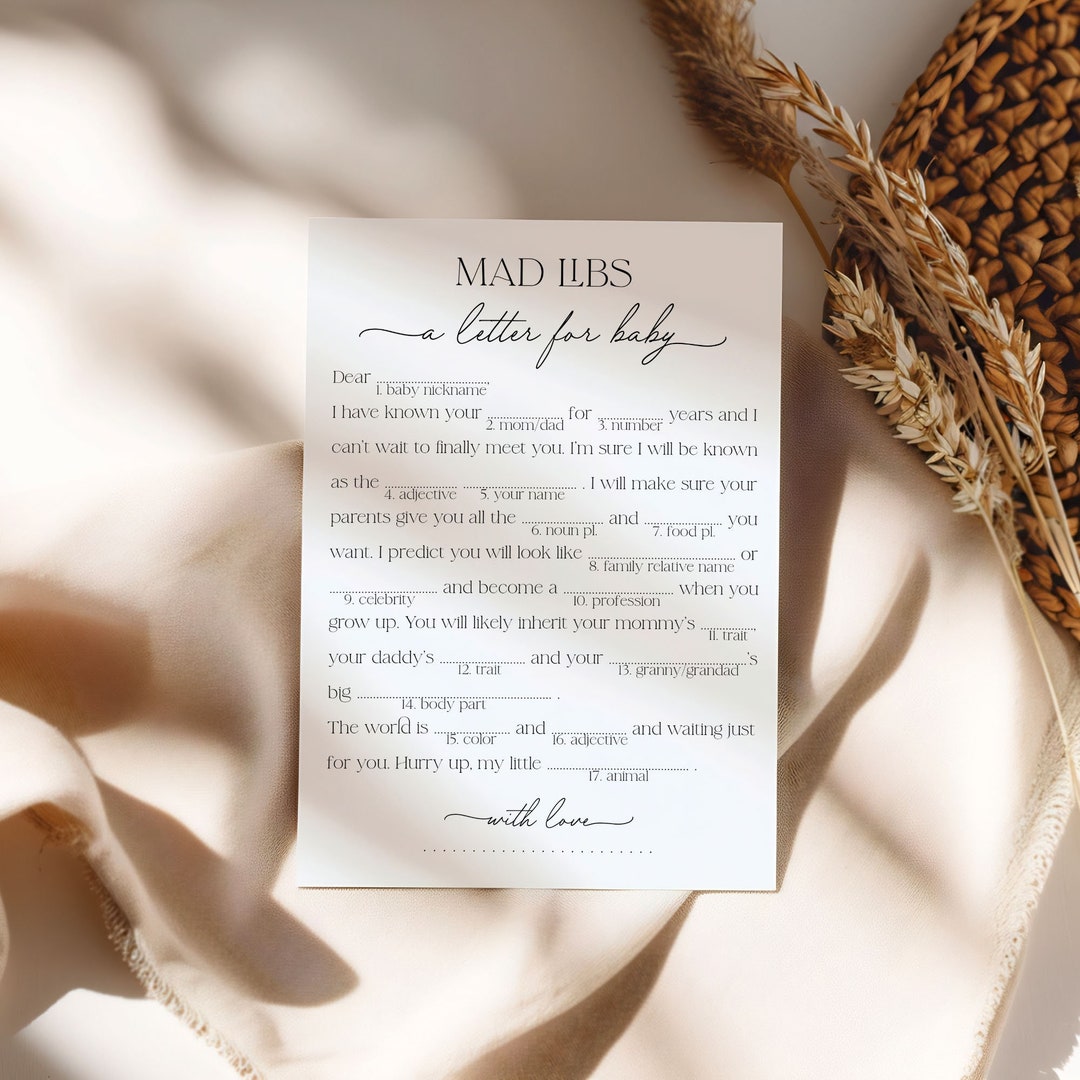 MAD LIBS
a letter for baby
Dear ........................,
1. baby nickname
I have known your ................ for .............. years and I
2. mom/dad 3. number
can't wait to finally meet you. I'm sure I will be known
as the ................ ........................ . I will make sure your
4. adjective 5. your name
parents give you all the .................. and ................ you
6. noun pl. 7. food pl.
want. I predict you will look like ................................ or
8. family relative name
........................ and become a ........................ when you
9. celebrity 10. profession
grow up. You will likely inherit your mommy's ............,
11. trait
your daddy's .................. and your ..............................'s
12. trait 13. granny/grandad
big .......................................... .
14. body part
The world is ................ and ................ and waiting just
15. color 16. adjective
for you. Hurry up, my little .............................. .
17. animal
with love
. . . . . . . . . . . . . . . . . . . . . . . .